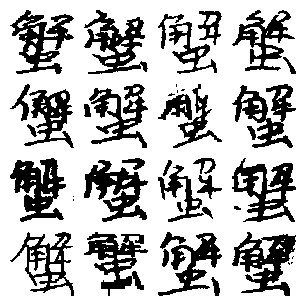 蟹蟹蟹蟹
蟹蟹蟹蟹
蟹蟹蟹蟹
蟹蟹蟹蟹